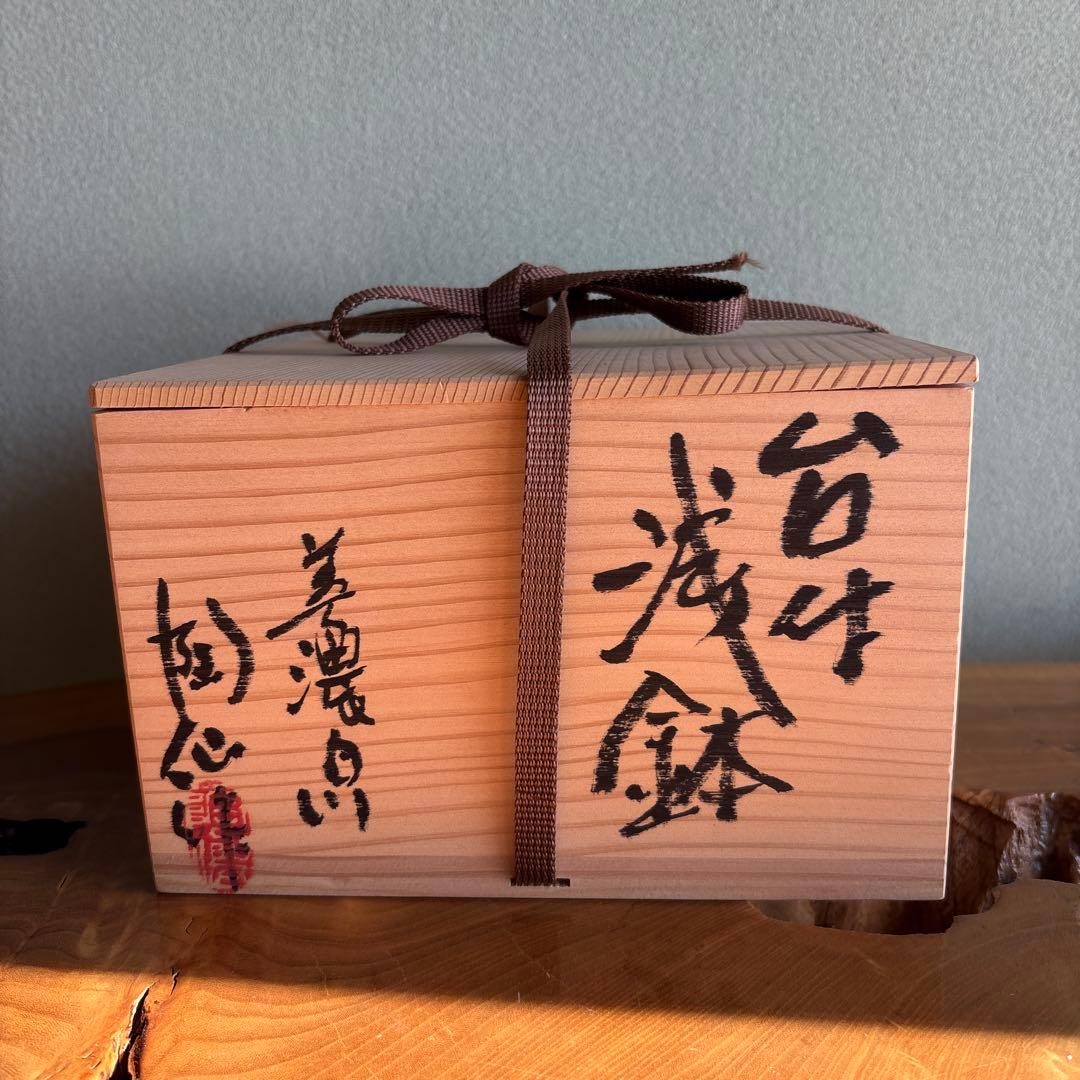 台付
浅鉢
美濃白川
陶仙